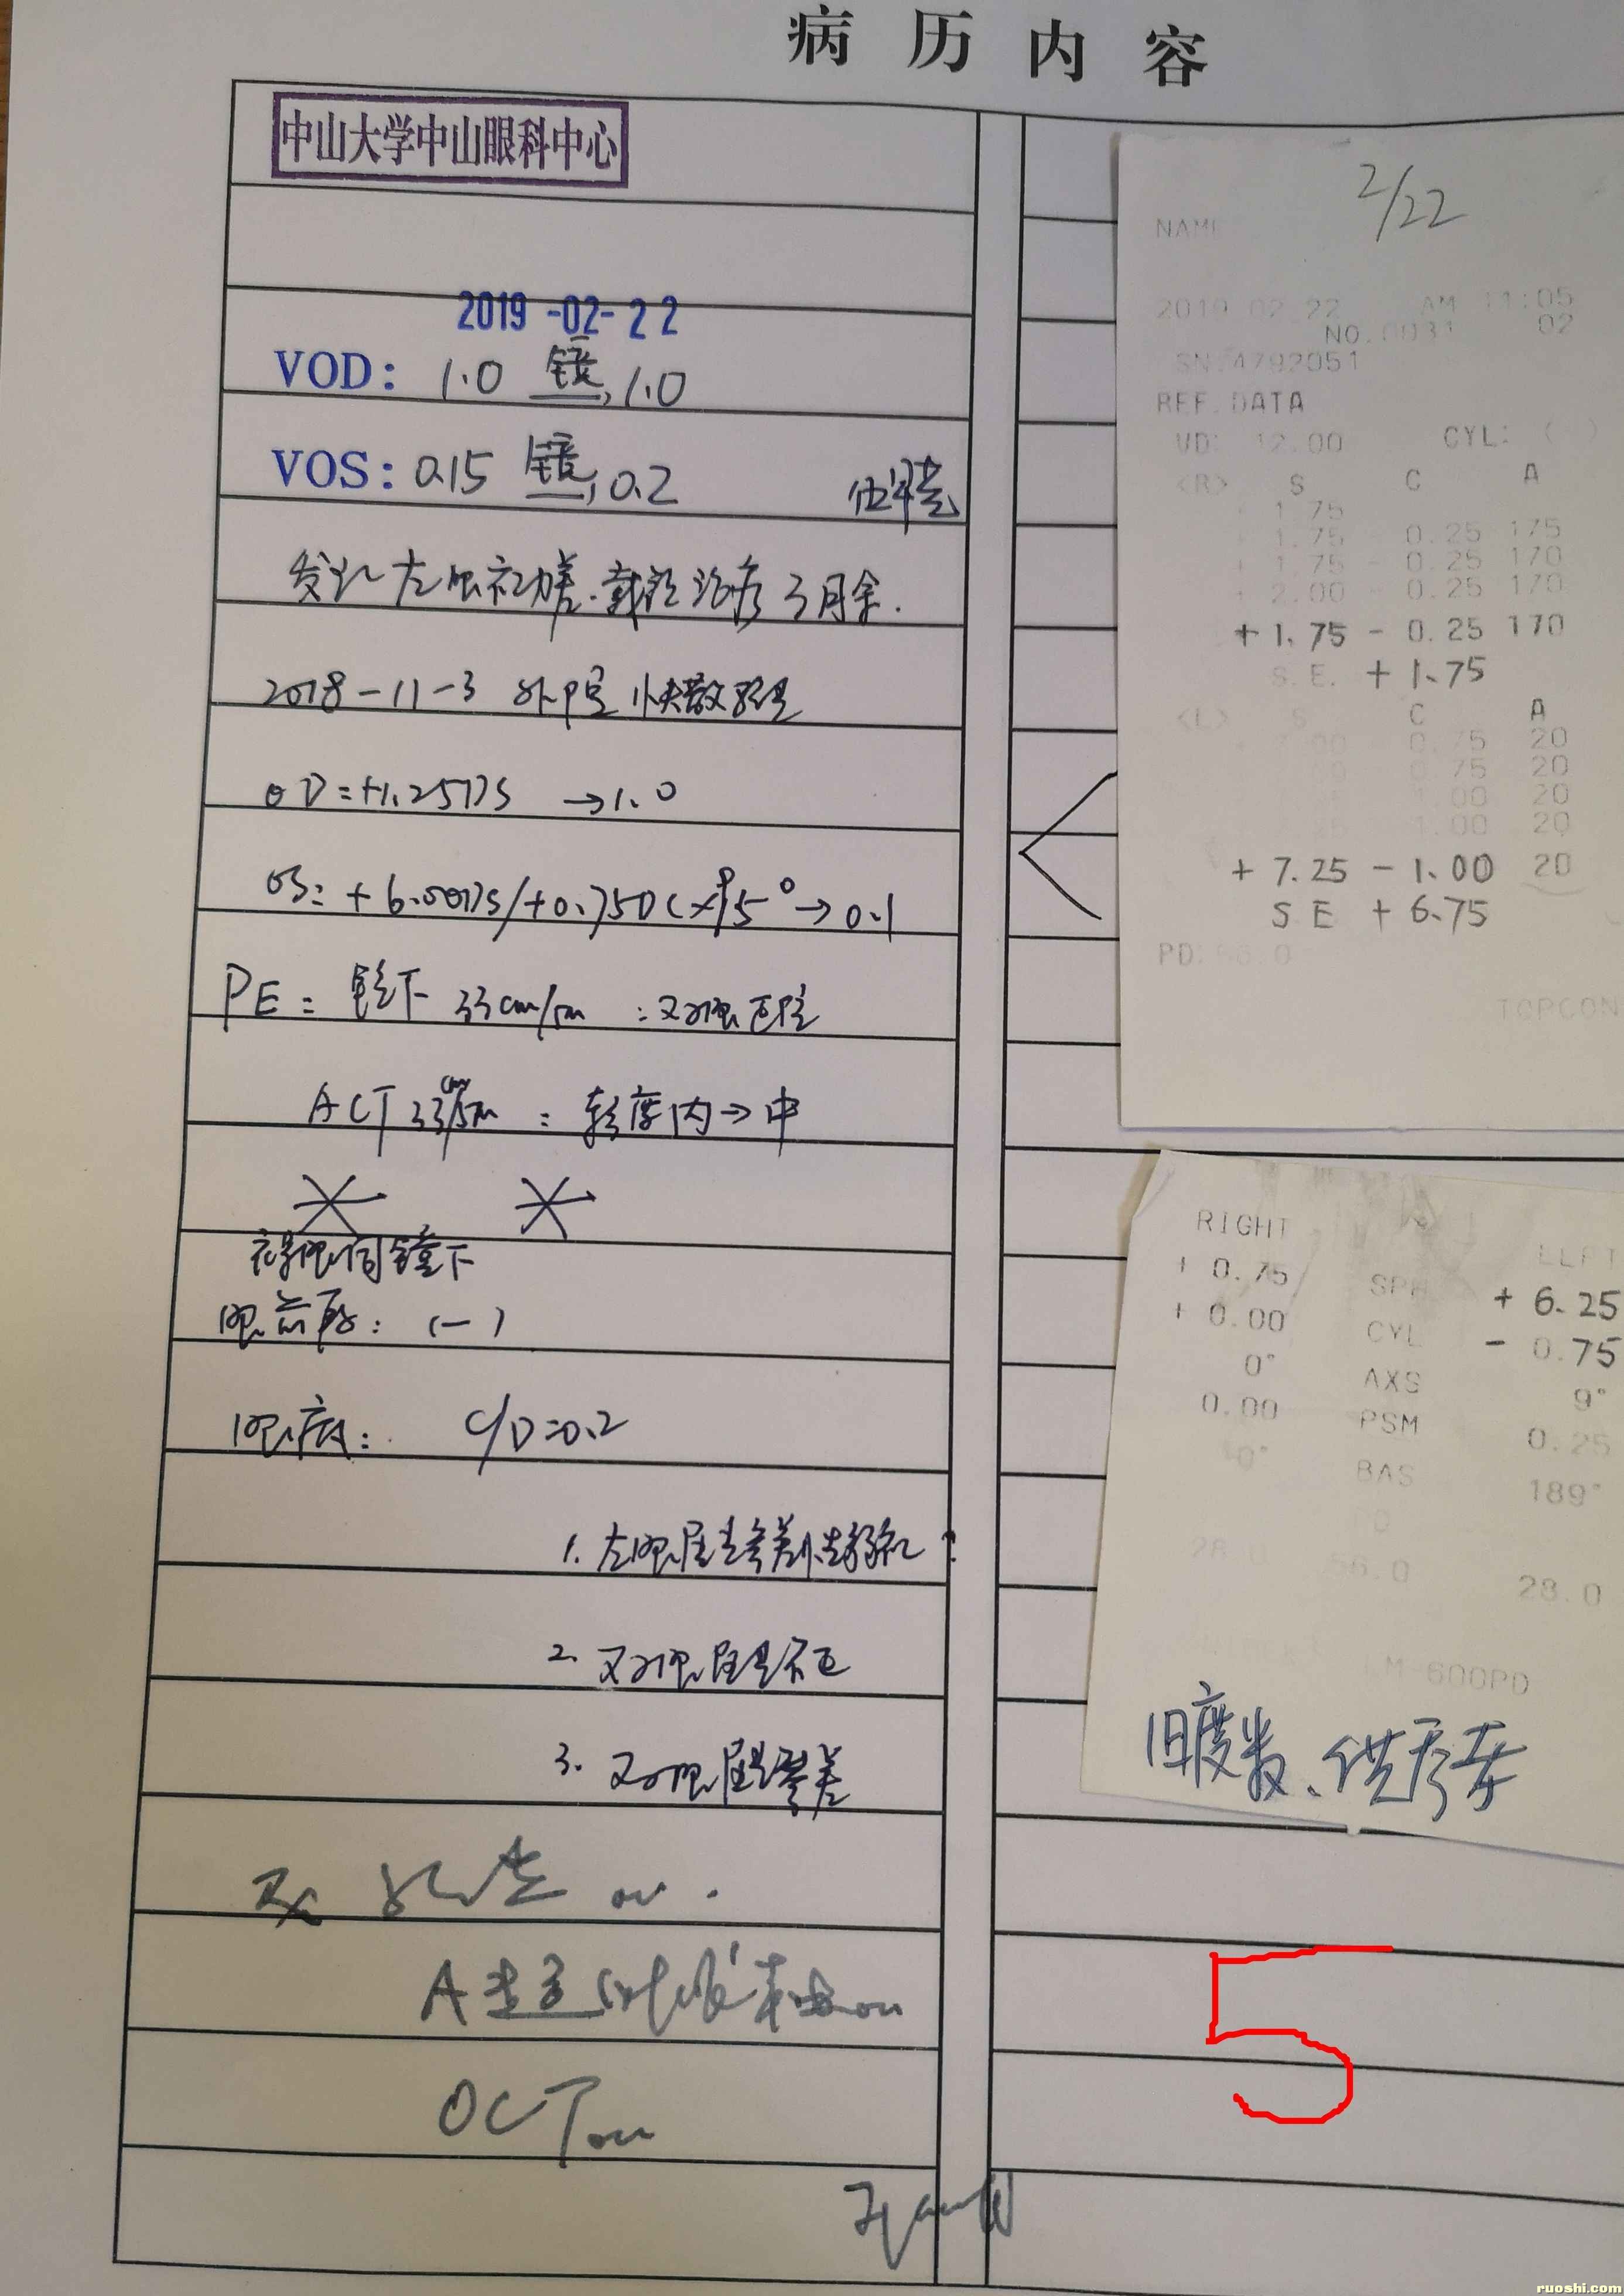 病历内容
中山大学中山眼科中心
2019-02-22
VOD: 1.0 镜, 1.0
VOS: 0.15 镜, 0.2
发现左眼视力差.戴镜治疗3月余.
2018-11-3 外院快散验光
OD=+1.25DS →1.0
OS: +6.00DS/+0.75DC×95°→0.1
PE: 镜下 33cm/5m :双眼正位
ACT 33cm/5m : 轻度内→中
眼前段: (-)
眼底: C/D=0.2
1. 左眼屈光参差性弱视?
2. 双眼屈光不正
3. 双眼屈光参差
OCT ou
2/22
NAME
2019 02 22 AM 11:05
NO.0031 02
SN:4792051
REF.DATA
VD: 12.00 CYL: ( )
<R> S C A
+ 1.75
+ 1.75 - 0.25 175
+ 1.75 - 0.25 170
+ 2.00 - 0.25 170
+ 1.75 - 0.25 170
S.E. + 1.75
<L> S C A
0.75 20
0.75 20
1.00 20
1.00 20
+ 7.25 - 1.00 20
S E + 6.75
PD: 56.0
TOPCON
RIGHT LEFT
+ 0.75 SPH + 6.25
+ 0.00 CYL - 0.75
0° AXS 9°
0.00 PSM 0.25
0° BAS 189°
28.0 56.0 28.0
M 600PD
旧度数、供参考
5
ruoshi.com